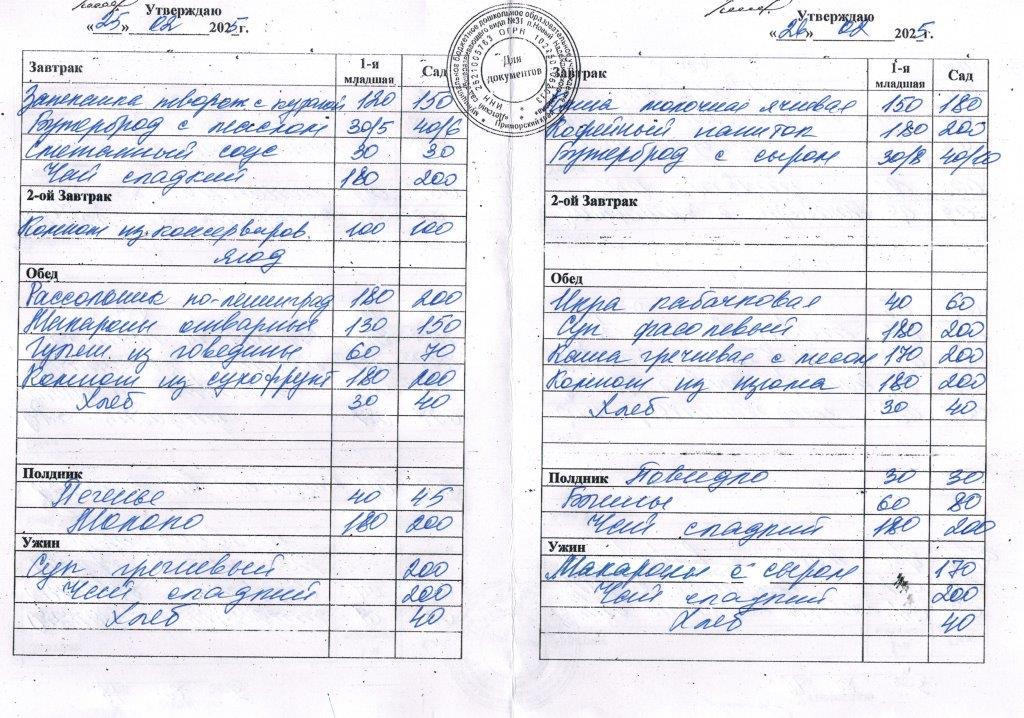 Утверждаю
«25» 02 2025г.
Завтрак 1-я младшая Сад
Запеканка творож с курагой 120 150
Бутерброд с маслом 30/5 40/6
Сметанный соус 30 30
Чай сладкий 180 200
2-ой Завтрак
Компот из консервиров. 100 100
ягод
Обед
Рассольник по-ленинград 180 200
Макароны отварные 130 150
Гуляш из говядины 60 70
Компот из сухофрукт 180 200
Хлеб 30 40
Полдник
Печенье 40 45
Молоко 180 200
Ужин
Суп гречневый 200
Чай сладкий 200
Хлеб 40
Для документов
Утверждаю
«26» 02 2025г.
Завтрак 1-я младшая Сад
Каша молочная ячневая 150 180
Кофейный напиток 180 200
Бутерброд с сыром 30/8 40/10
2-ой Завтрак
Обед
Икра кабачковая 40 60
Суп фасолевый 180 200
Каша гречневая с мясом 170 200
Компот из изюма 180 200
Хлеб 30 40
Полдник Повидло 30 30
Блины 60 80
Чай сладкий 180 200
Ужин
Макароны с сыром 170
Чай сладкий 200
Хлеб 40